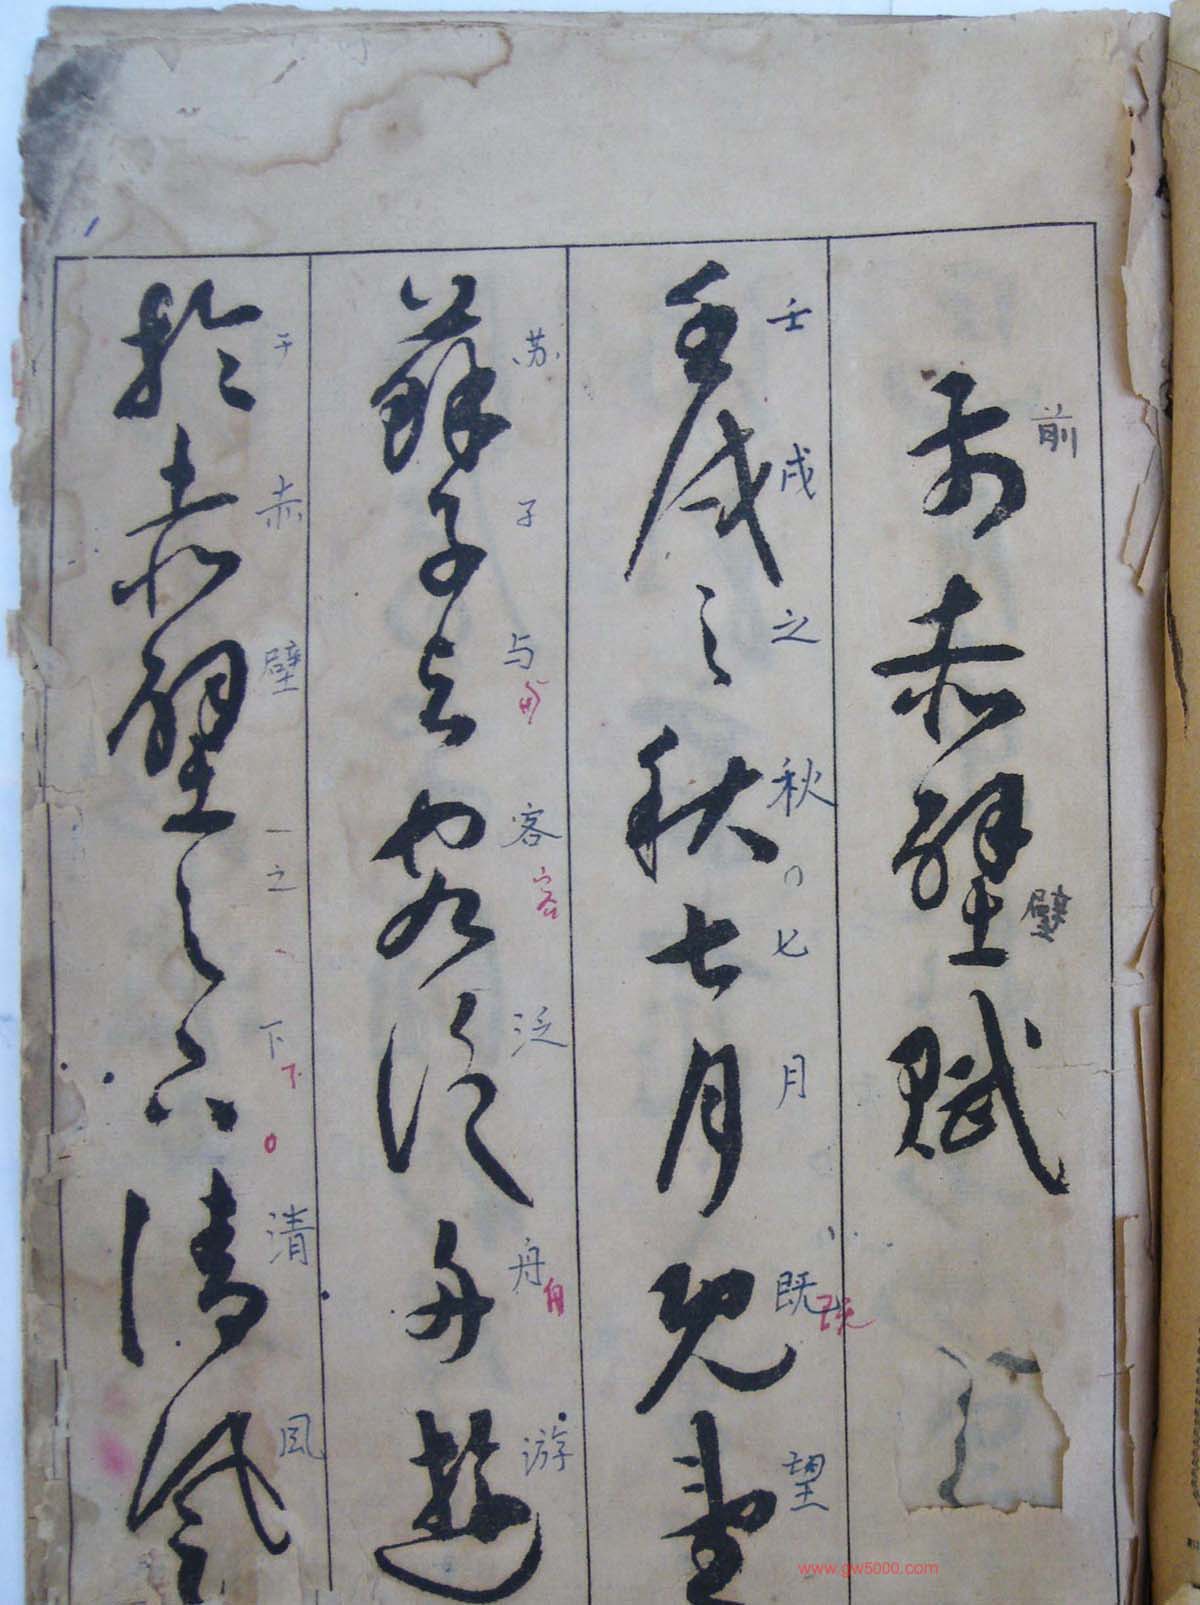 前赤壁賦
壬戌之秋七月既望
蘇子与客泛舟遊
於赤壁之下清風
前
壁
壬戌之秋七月既望
既
苏子与客泛舟游
客
舟
于赤壁之下清風
下
www.gw5000.com